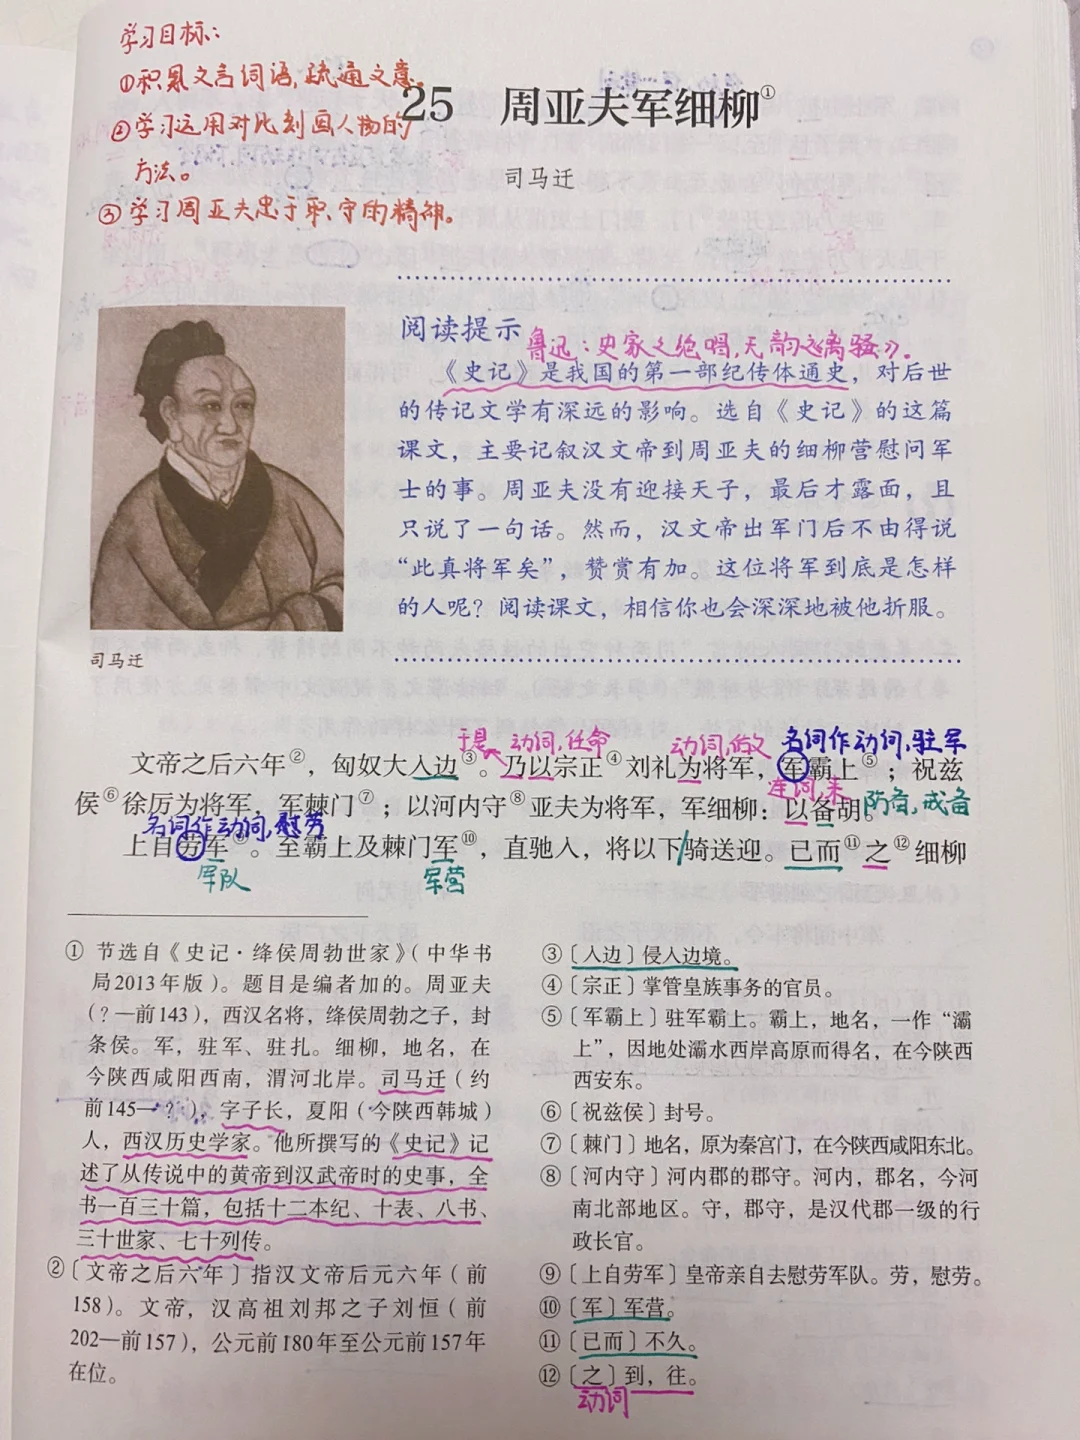 学习目标:
①积累文言词语,疏通文意。
②学习运用对比刻画人物的
方法。
③学习周亚夫忠于职守的精神。
25 周亚夫军细柳①
司马迁
阅读提示
鲁迅:史家之绝唱,无韵之离骚》。
《史记》是我国的第一部纪传体通史，对后世
的传记文学有深远的影响。选自《史记》的这篇
课文，主要记叙汉文帝到周亚夫的细柳营慰问军
士的事。周亚夫没有迎接天子，最后才露面，且
只说了一句话。然而，汉文帝出军门后不由得说
“此真将军矣”，赞赏有加。这位将军到底是怎样
的人呢？阅读课文，相信你也会深深地被他折服。
司马迁
于是 动词,任命 动词,做 名词作动词,驻军
文帝之后六年②，匈奴大入边③。乃以宗正④刘礼为将军，军霸上⑤；祝兹
连词,来 防备,戒备
侯⑥徐厉为将军，军棘门⑦；以河内守⑧亚夫为将军，军细柳：以备胡。
名词作动词,慰劳
上自劳军⑨。至霸上及棘门军⑩，直驰入，将以下/骑送迎。已而⑪之⑫细柳
军队 军营
① 节选自《史记·绛侯周勃世家》（中华书
局2013年版）。题目是编者加的。周亚夫
（？—前143），西汉名将，绛侯周勃之子，封
条侯。军，驻军、驻扎。细柳，地名，在
今陕西咸阳西南，渭河北岸。司马迁（约
前145—？），字子长，夏阳（今陕西韩城）
人，西汉历史学家。他所撰写的《史记》记
述了从传说中的黄帝到汉武帝时的史事，全
书一百三十篇，包括十二本纪、十表、八书、
三十世家、七十列传。
②〔文帝之后六年〕指汉文帝后元六年（前
158）。文帝，汉高祖刘邦之子刘恒（前
202—前157），公元前180年至公元前157年
在位。
③〔入边〕侵入边境。
④〔宗正〕掌管皇族事务的官员。
⑤〔军霸上〕驻军霸上。霸上，地名，一作“灞
上”，因地处灞水西岸高原而得名，在今陕西
西安东。
⑥〔祝兹侯〕封号。
⑦〔棘门〕地名，原为秦宫门，在今陕西咸阳东北。
⑧〔河内守〕河内郡的郡守。河内，郡名，今河
南北部地区。守，郡守，是汉代郡一级的行
政长官。
⑨〔上自劳军〕皇帝亲自去慰劳军队。劳，慰劳。
⑩〔军〕军营。
⑪〔已而〕不久。
⑫〔之〕到，往。
动词